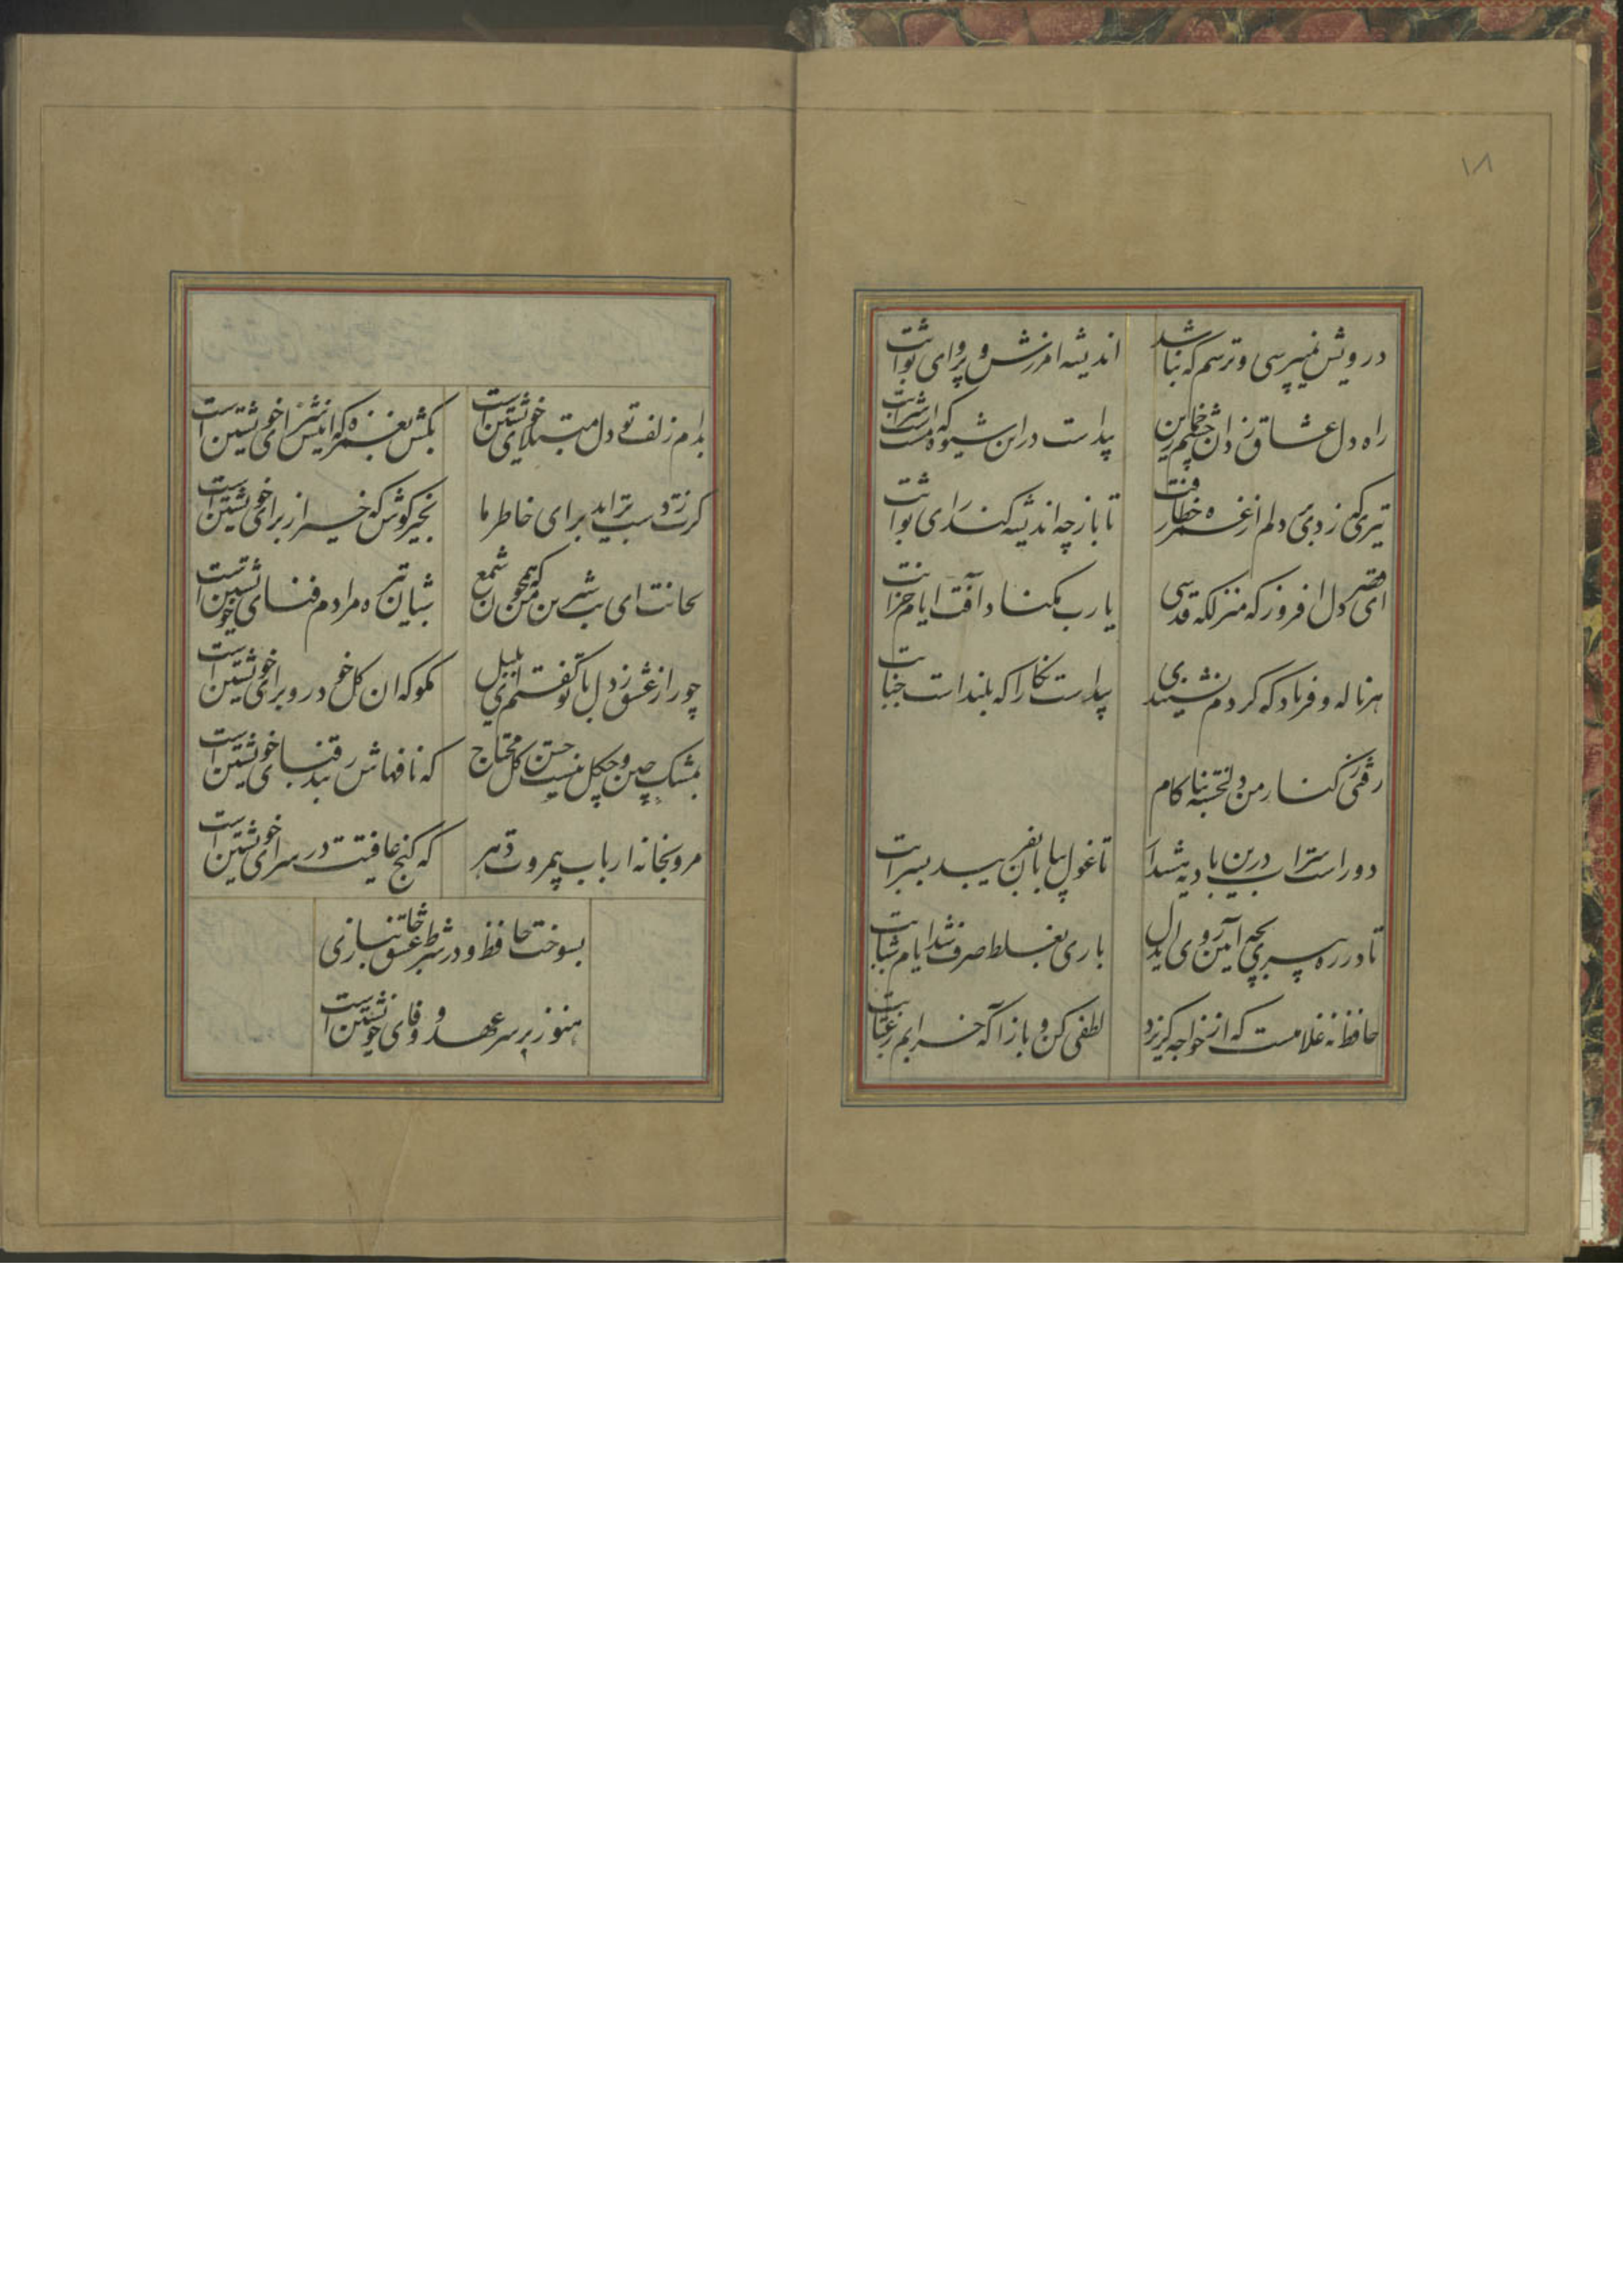 ۱۸
درویش نمیپرسی و ترسم که نباشد اندیشه امرزش و پروای ثوابت
راه دل عشاق زد ان چشم خمارین پیداست دراین شیوه که مستست شرابت
تیری که زدی بر دلم از غمزه خطا رفت تا باز چه اندیشه کند رای ثوابت
ای قصر دل افروز که منزلگه قدسی یا رب مکناد آفت ایام خرابت
هر ناله و فریاد که کردم نشنیدی پیداست نگارا که بلند است جنابت
رفتی ز کنار من دلخسته بناکام
دور است سراب درین بادیه هشدار تا غول بیابان نفریبد بسرابت
تا در ره پیری بچه آیین روی ای دل باری بغلط صرف شد ایام شبابت
حافظ نه غلامست که از خواجه گریزد لطفی کن و باز ا که خرابم ز عتابت
بدام زلف تو دل مبتلای خویشتن است بکش بغمزه که اینش سزای خویشتن است
گرت ز دست براید مراد خاطر ما بخیر کوش که خیر از برای خویشتن است
بجانت ای بت شیرین من که همچون شمع شبان تیره مرادم فنای خویشتن است
چو رای عشق زدی با تو گفتم ای بلبل مکو که ان کل خودرو برای خویشتن است
بمشک چین و چکل نیست حسن کل محتاج که نافهاش ز بند قبای خویشتن است
مرو بخانه ارباب بیمروت دهر که کنج عافیت در سرای خویشتن است
بسوخت حافظ و در شرط عشق و جانبازی
هنوز بر سر عهد و وفای خویشتن است